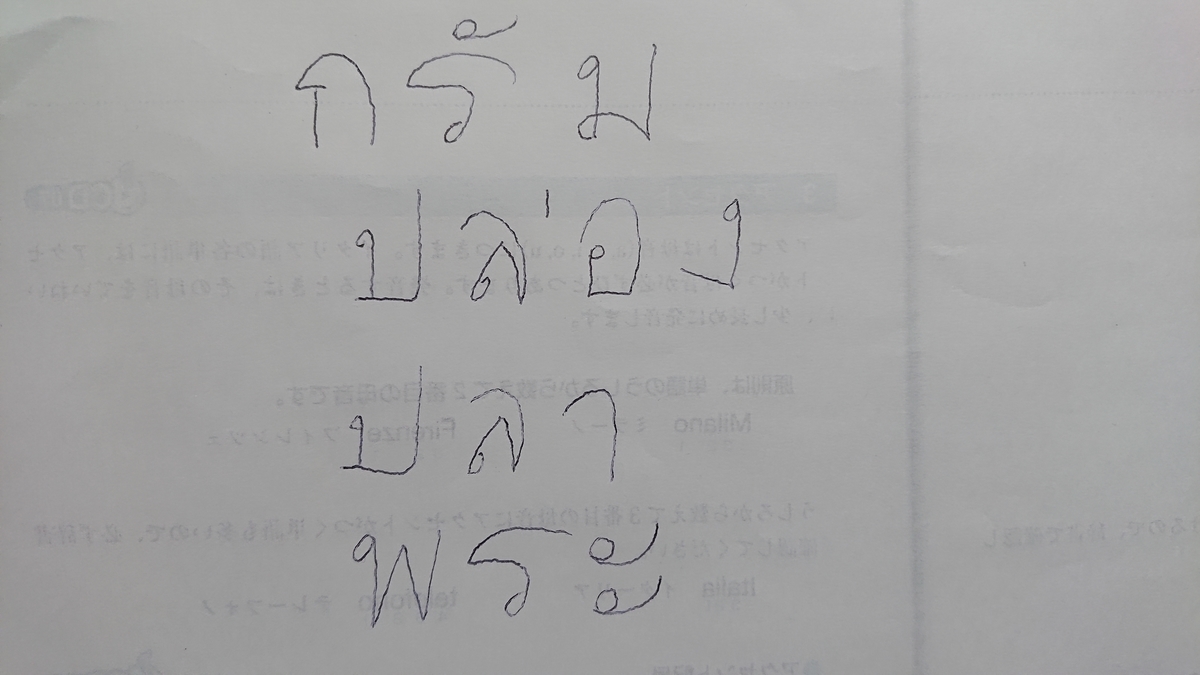 กรัม
ปล่อง
ปลา
พระ